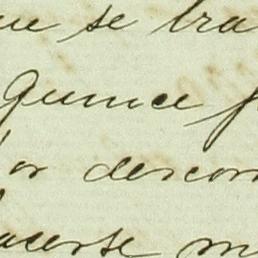 ue se tra
Quince f
or descon
acerse m